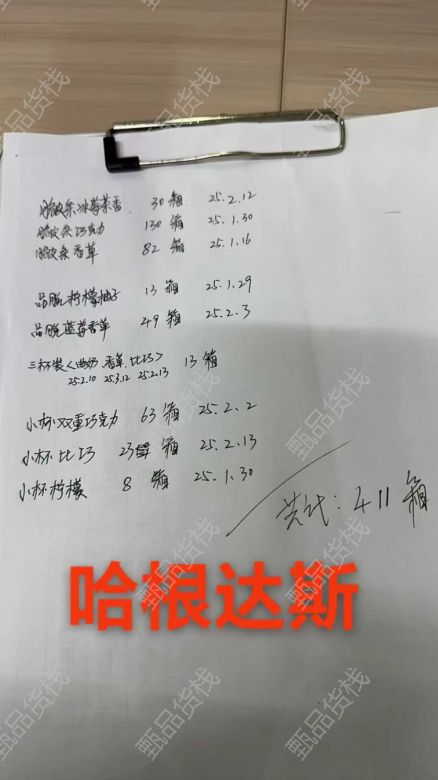 脆皮条冰莓茉香 30箱 25.2.12
脆皮条巧克力 130箱 25.1.30
脆皮条香草 82箱 25.1.16
品脱柠檬柚子 13箱 25.1.29
品脱蓝莓香草 49箱 25.2.3
三杯装<曲奶 香草.比巧> 13箱
25.2.10 25.3.12 25.2.13
小杯双重巧克力 63箱 25.2.2
小杯比巧 23箱 25.2.13
小杯柠檬 8箱 25.1.30
共计:411箱
哈根达斯
甄品货栈